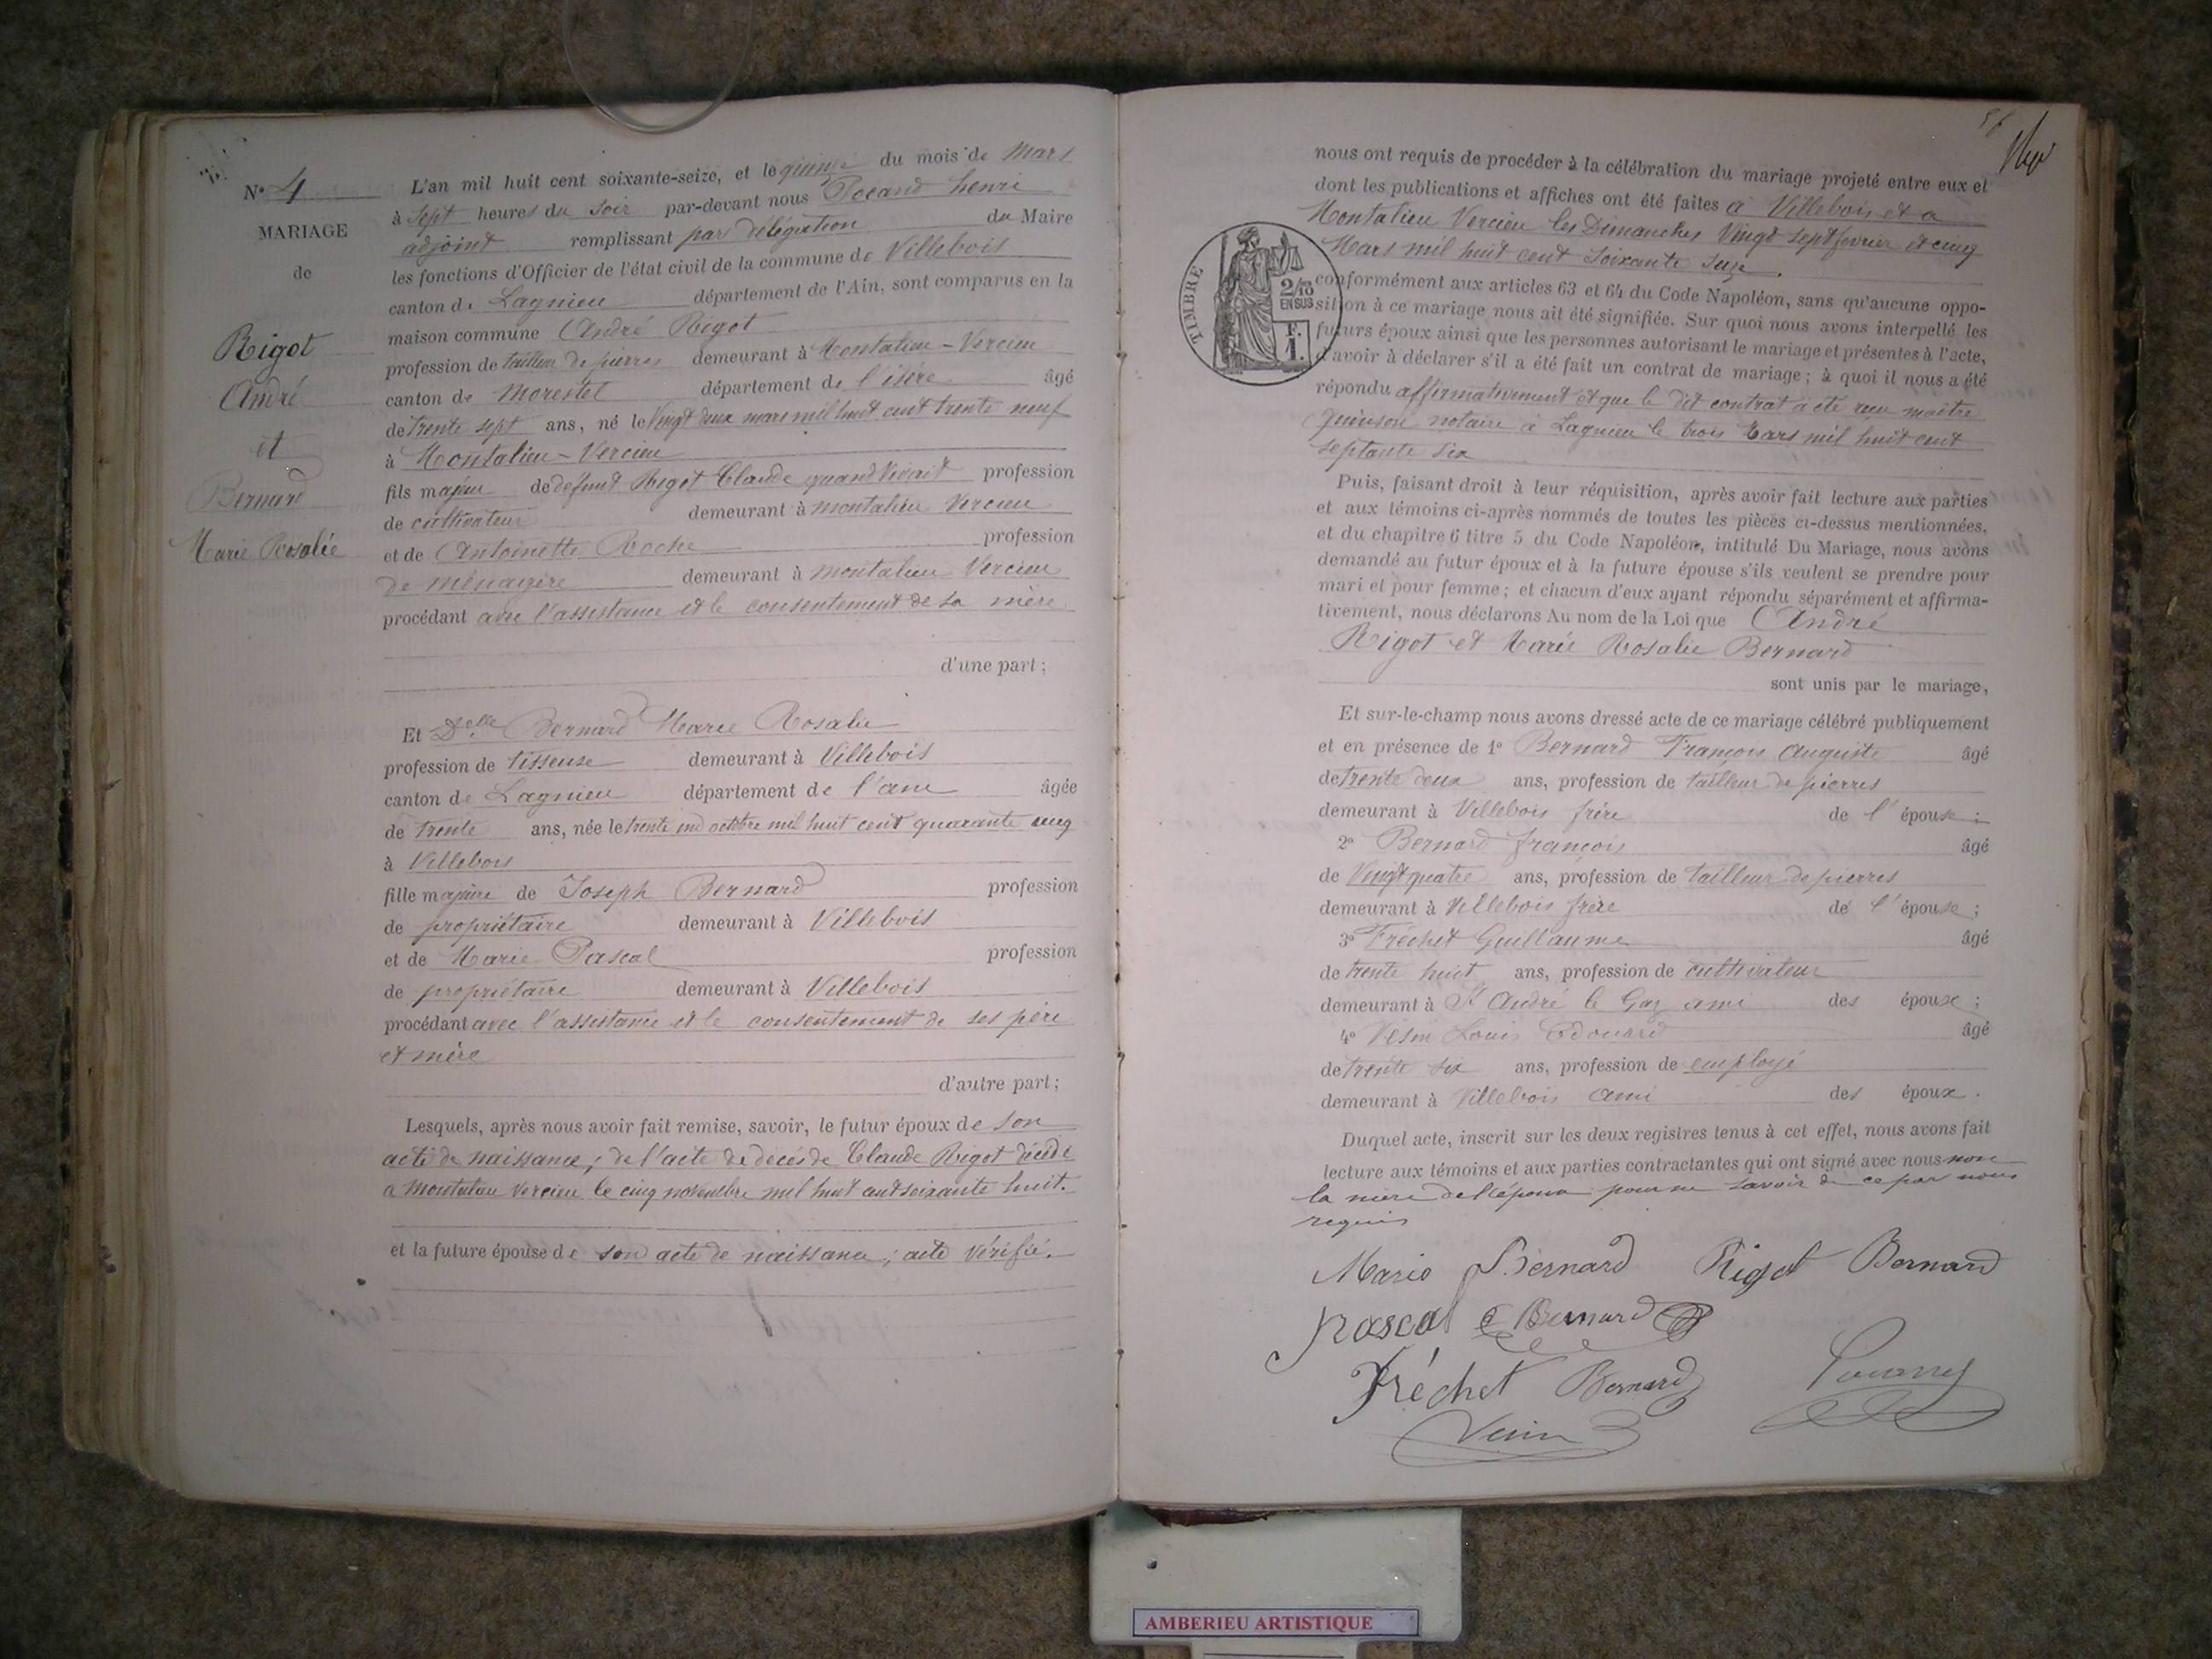 N° 4
MARIAGE
de
Rigot
André
et
Bernard
Marie Rosalie
L'an mil huit cent soixante-seize, et le quinze du mois de Mars
à sept heures du soir par-devant nous Pocand henri
adjoint remplissant par délégation du Maire
les fonctions d'Officier de l'état civil de la commune de Villebois
canton de Lagnieu département de l'Ain, sont comparus en la
maison commune André Rigot
profession de tailleur de pierres demeurant à Montalieu-Vercieu
canton de Morestel département de l'isère âgé
de trente sept ans, né le Vingt deux mars mil huit cent trente neuf
à Montalieu-Vercieu
fils majeur de défunt Rigot Claude quand vivait profession
de cultivateur demeurant à montalieu Vercieu
et de Antoinette Roche profession
de ménagère demeurant à montalieu Vercieu
procédant avec l'assistance et le consentement de sa mère
d'une part;
Et Delle Bernard Marie Rosalie
profession de tisseuse demeurant à Villebois
canton de Lagnieu département de l'ain âgée
de trente ans, née le trente un octobre mil huit cent quarante cinq
à Villebois
fille majeure de Joseph Bernard profession
de propriétaire demeurant à Villebois
et de Marie Pascal profession
de propriétaire demeurant à Villebois
procédant avec l'assistance et le consentement de ses père
et mère
d'autre part;
Lesquels, après nous avoir fait remise, savoir, le futur époux de son
acte de naissance; de l'acte de décès de Claude Rigot décédé
a Montalieu Vercieu le cinq novembre mil huit cent soixante huit.
et la future épouse de son acte de naissance; acte vérifié.
nous ont requis de procéder à la célébration du mariage projeté entre eux et
dont les publications et affiches ont été faites à Villebois et a
Montalieu Vercieu les Dimanches Vingt sept fevrier et cinq
Mars mil huit cent Soixante seize.
TIMBRE
2/10
EN SUS
F.
1.
conformément aux articles 63 et 64 du Code Napoléon, sans qu'aucune oppo-
sition à ce mariage nous ait été signifiée. Sur quoi nous avons interpellé les
futurs époux ainsi que les personnes autorisant le mariage et présentes à l'acte,
d'avoir à déclarer s'il a été fait un contrat de mariage; à quoi il nous a été
répondu affirmativement et que le dit contrat a été reçu maitre
quinson notaire à Lagnieu le trois Mars mil huit cent
septante six
Puis, faisant droit à leur réquisition, après avoir fait lecture aux parties
et aux témoins ci-après nommés de toutes les pièces ci-dessus mentionnées,
et du chapitre 6 titre 5 du Code Napoléon, intitulé Du Mariage, nous avons
demandé au futur époux et à la future épouse s'ils veulent se prendre pour
mari et pour femme; et chacun d'eux ayant répondu séparément et affirma-
tivement, nous déclarons Au nom de la Loi que André
Rigot et Marie Rosalie Bernard
sont unis par le mariage,
Et sur-le-champ nous avons dressé acte de ce mariage célébré publiquement
et en présence de 1° Bernard François Auguste âgé
de trente deux ans, profession de tailleur de pierres
demeurant à Villebois frère de l'épouse;
2° Bernard françois âgé
de Vingt quatre ans, profession de tailleur de pierres
demeurant à Villebois frère de l'épouse;
3° Fréchet Guillaume âgé
de trente huit ans, profession de cultivateur
demeurant à St André le Gaz ami des époux;
4° Vesin Louis Edouard âgé
de trente six ans, profession de employé
demeurant à Villebois ami des époux.
Duquel acte, inscrit sur les deux registres tenus à cet effet, nous avons fait
lecture aux témoins et aux parties contractantes qui ont signé avec nous non
la mère de l'époux pour ne savoir de ce par nous
requis
Marie Bernard Rigot Bernard
pascal Bernard
Fréchet Bernard
Vesin
AMBERIEU ARTISTIQUE